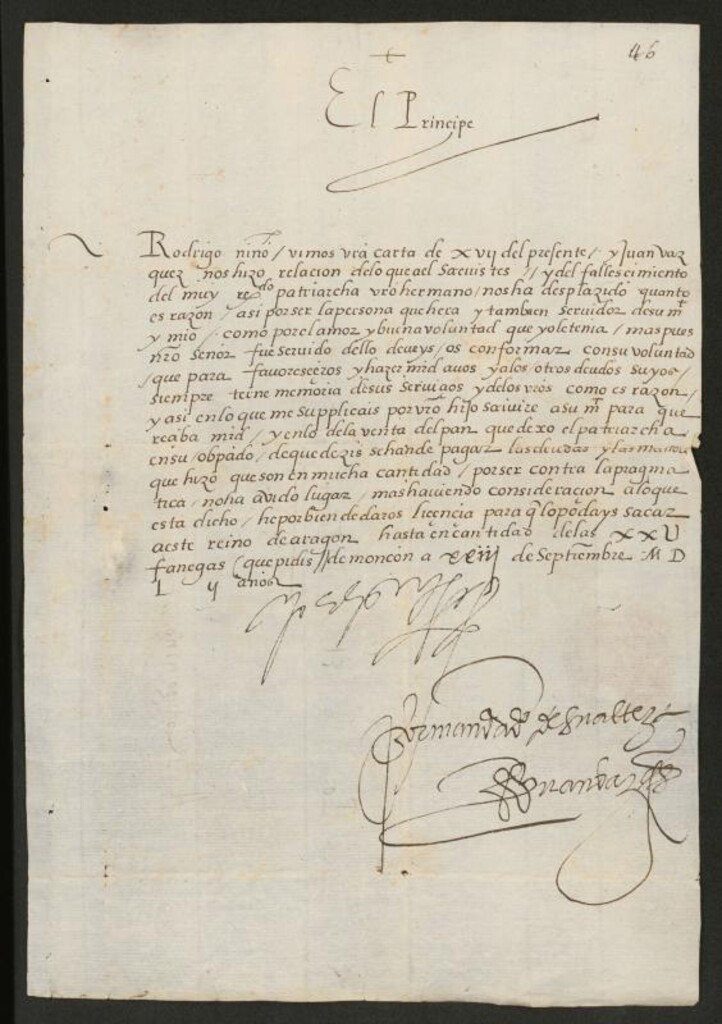 46
El Principe
Rodrigo niño / vimos vrã carta de xvij del presente / y Juan vaz
quez nos hizo relacion delo que ael screuistes // y del fallescimiento
del muy re^do patriarcha vrõ hermano / nos ha desplazido quanto
es razon / asi por ser la persona que hera y tambien seruidor desu m^t
y mio / como por el amor y buena voluntad que yo le tenia / mas pues
nrõ Señor fue seruido dello deueys / os conformar con su voluntad
/ que para fauoresceros y hazer mrd auos y alos otros deudos suyos /
siempre terne memoria de sus seruicios y delos vrõs como es razon /
y asi en lo que me supplicais por vrõ hijo screuire a su m^t para que
reciba mrd / y en lo dela venta del pan que dexo el patriarcha
en su / obpãdo / de que dezis se han de pagar las deudas y las mandas
que hizo que son en mucha cantidad / por ser contra la pragma
tica / no ha auido lugar / mas hauiendo consideracion a lo que
esta dicho / he por bien de daros licencia para q̃ lo podays sacar
a este reino de aragon hasta en cantidad de las xxU
fanegas (que pedis // de monçon a xxiij de Septiembre M D
L ij años
yo el principe